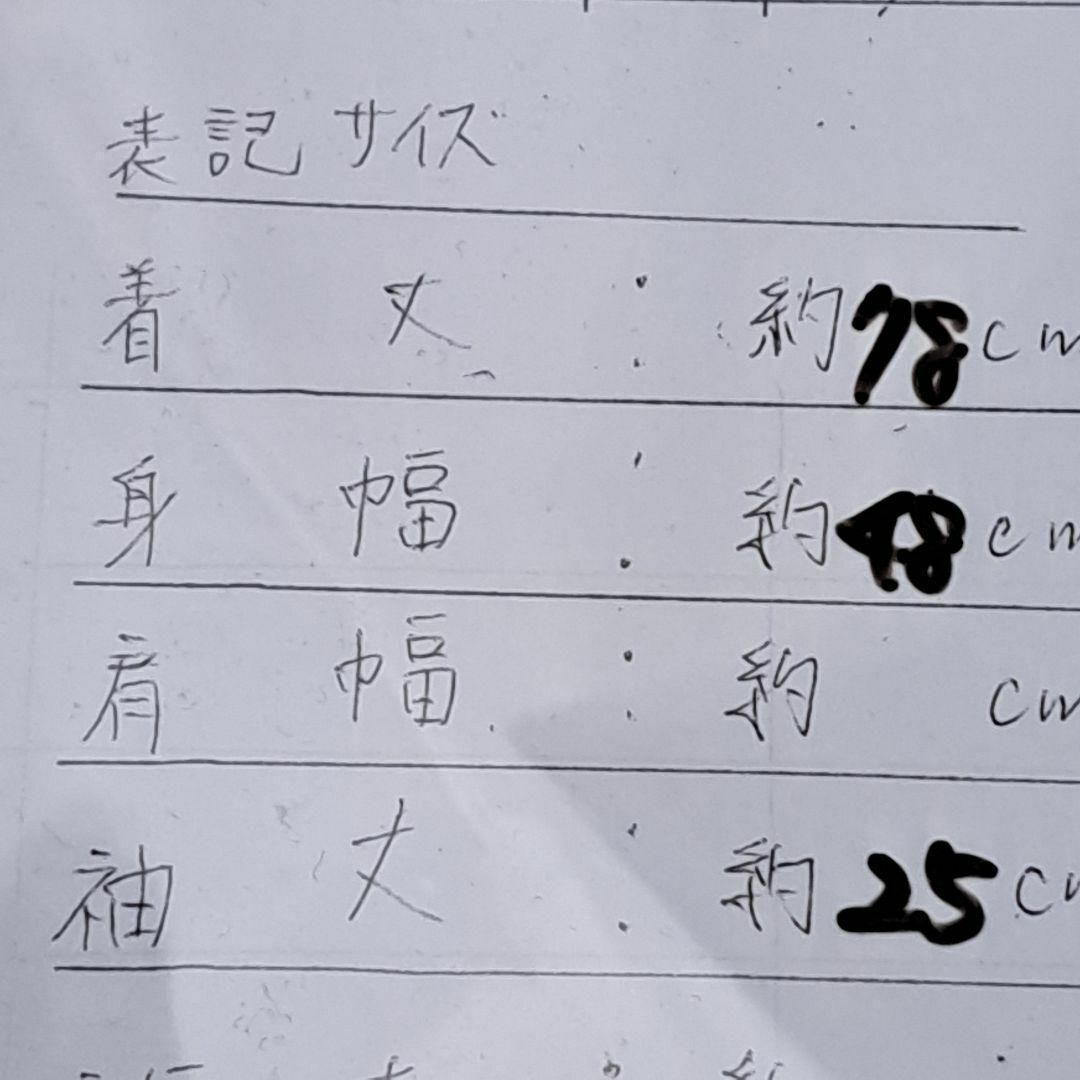 表記サイズ
着丈:約78cm
身幅:約48cm
肩幅:約 cm
袖丈:約25cm